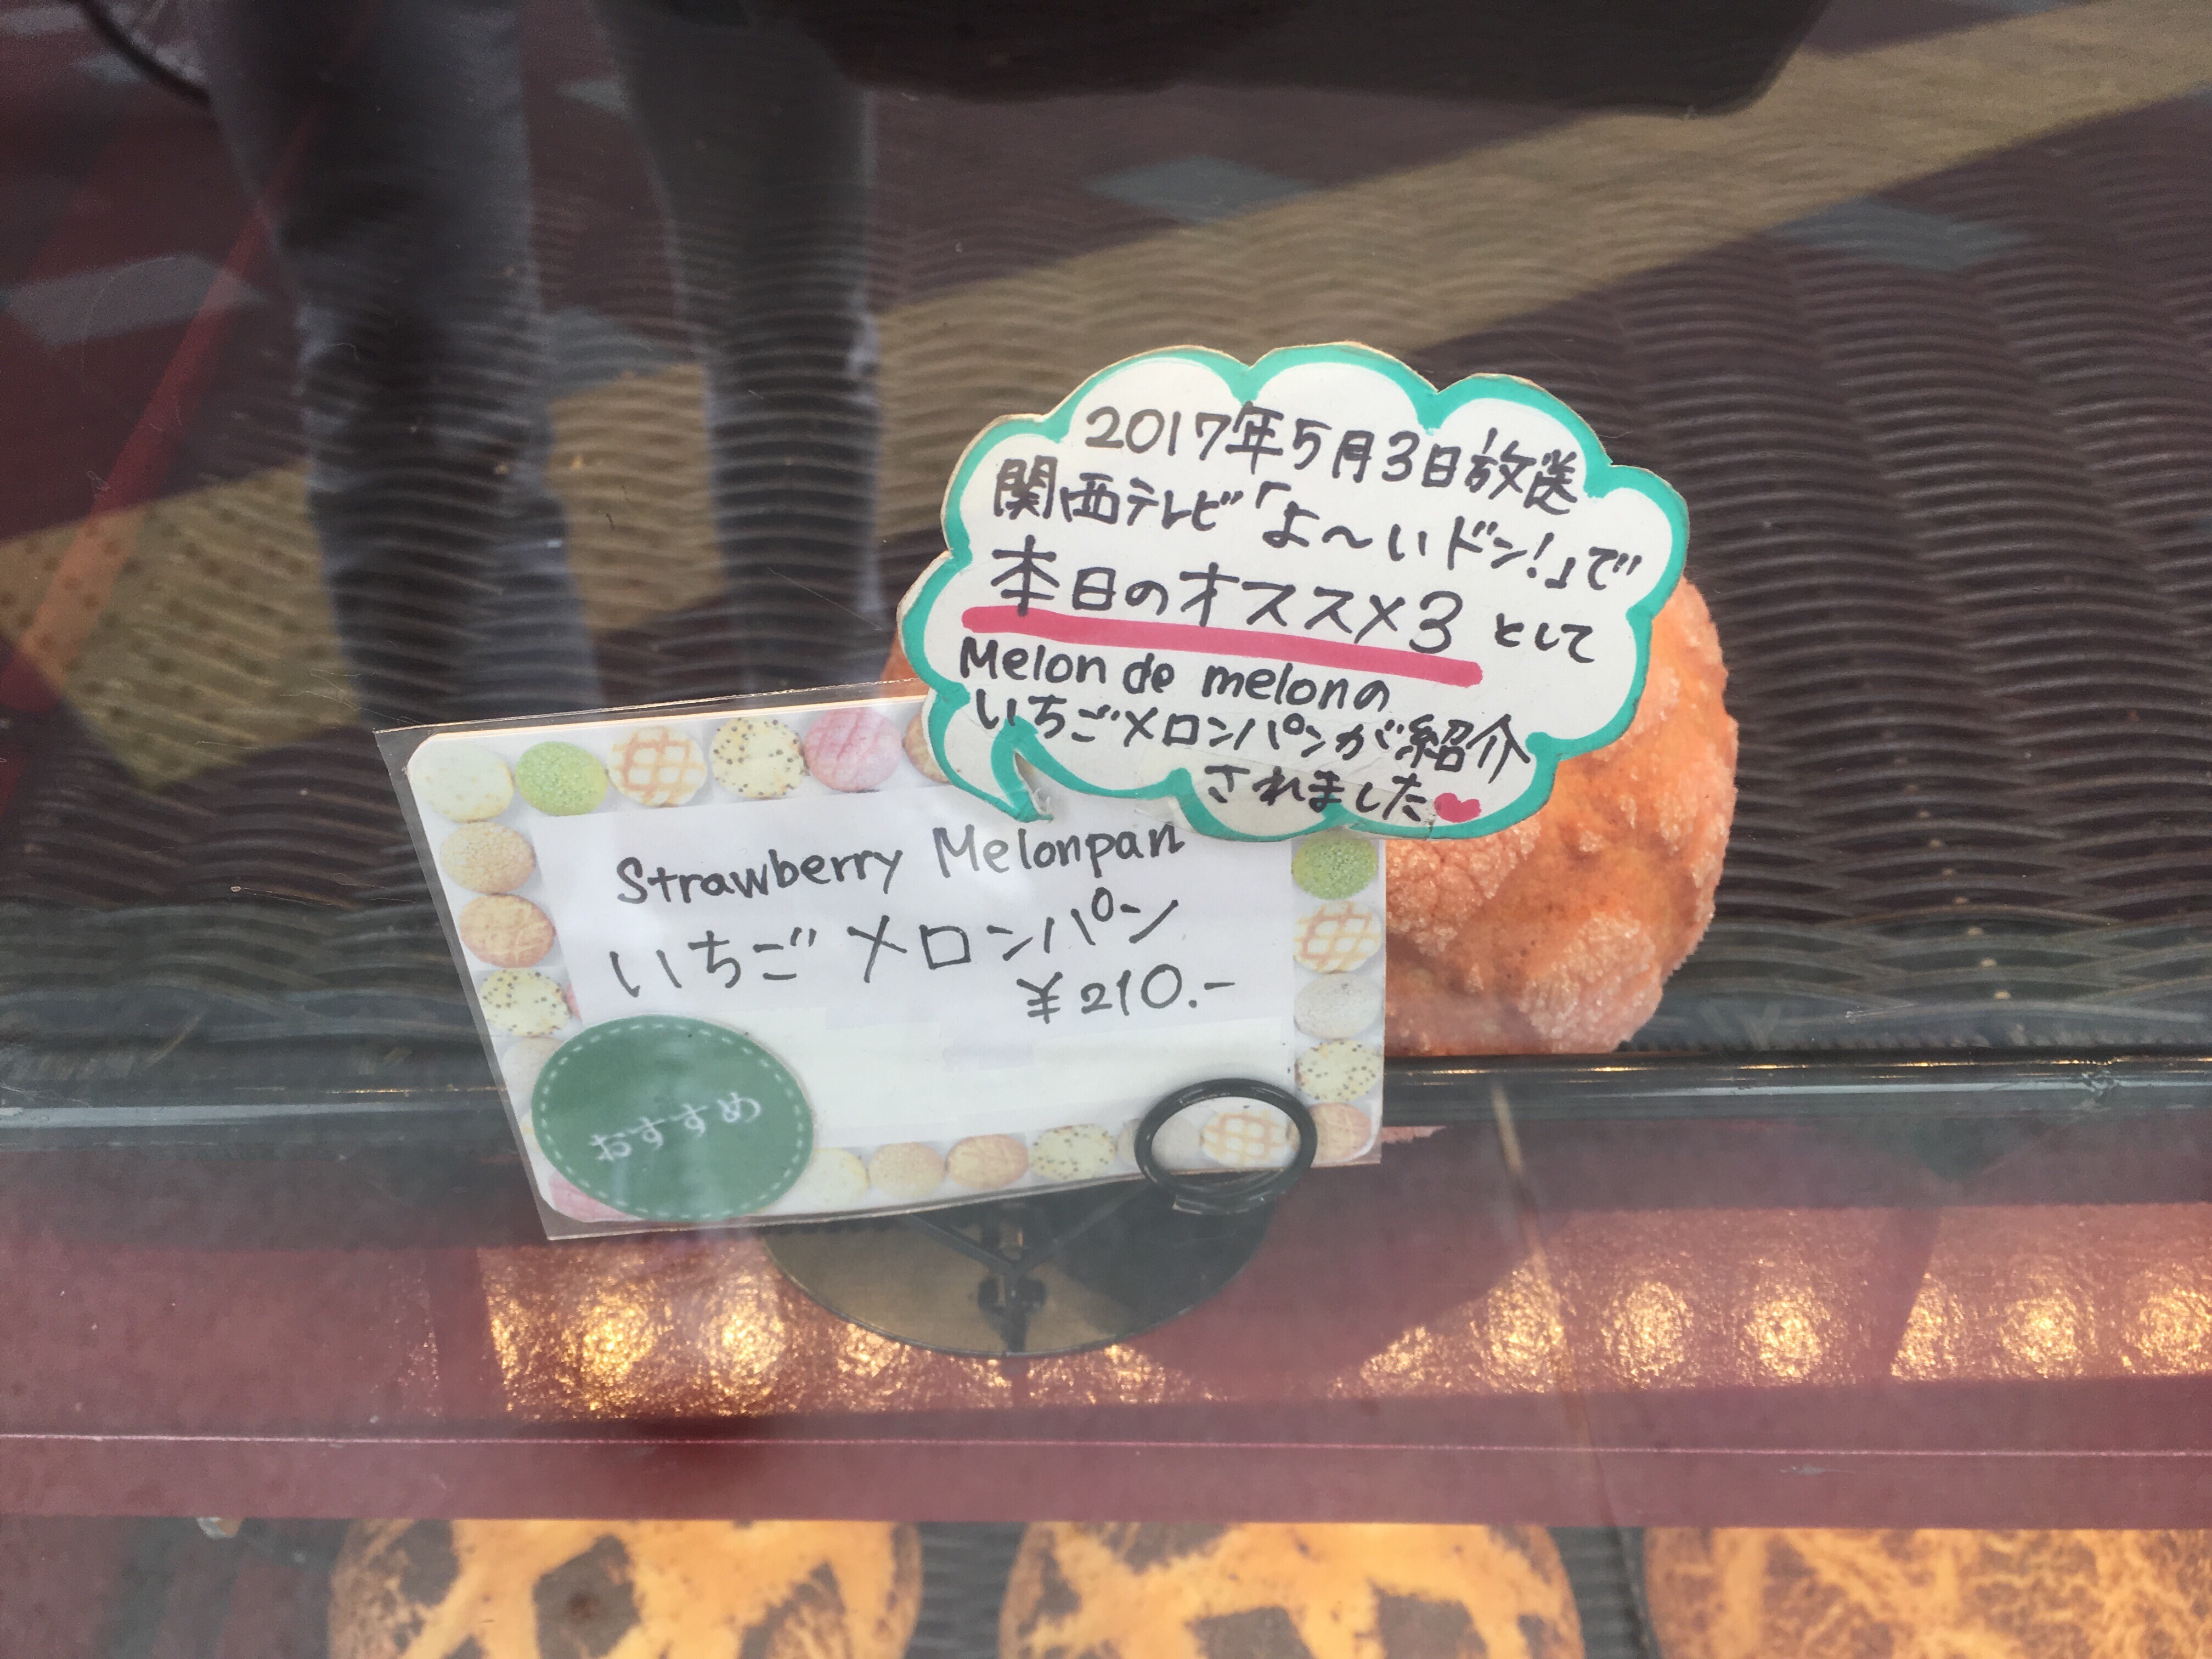 2017年5月3日放送
関西テレビ「よ～いドン!」で
本日のオススメ3 として
Melon de melonの
いちごメロンパンが紹介
されました
Strawberry Melonpan
いちごメロンパン
¥210.-
おすすめ